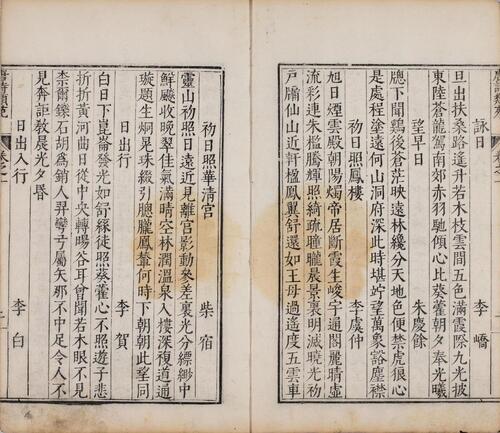 詠日
李嶠
旦出扶桑路遙升若木枝雲間五色滿霞際九光披
東陸蒼龍駕南郊赤羽馳傾心比葵藿朝夕奉光曦
望早日
朱慶餘
牕下聞鷄後蒼茫映遠林纔分天地色便禁虎狼心
是處程途遠何山洞府深此時堪竚望萬象豁塵襟
初日照鳳樓
李虞仲
旭日煙雲殿朝陽燭帝居斷霞生峻宇通閣麗晴虛
流彩連朱檻騰輝照綺疏曈曨晨景裏明滅曉光初
戶牖仙山近軒楹鳳翼舒還如王母過遙度五雲車
初日照華清宮
柴宿
靈山初照日遠近見離宮影動參差裏光分縹緲中
鮮飈收晚翠佳氣滿晴空林潤溫泉入樓深複道通
璇題生炯晃珠綴引朣朧鳳輦何時下朝朝此望同
日出行
李賀
白日下崑崙發光如舒絲徒照葵藿心不照遊子悲
折折黃河曲日從中央轉暘谷耳曾聞若木眼不見
柰爾鑠石胡爲銷人羿彎弓屬矢那不中足令人不
見奔詎教晨光夕昏
日出入行
李白